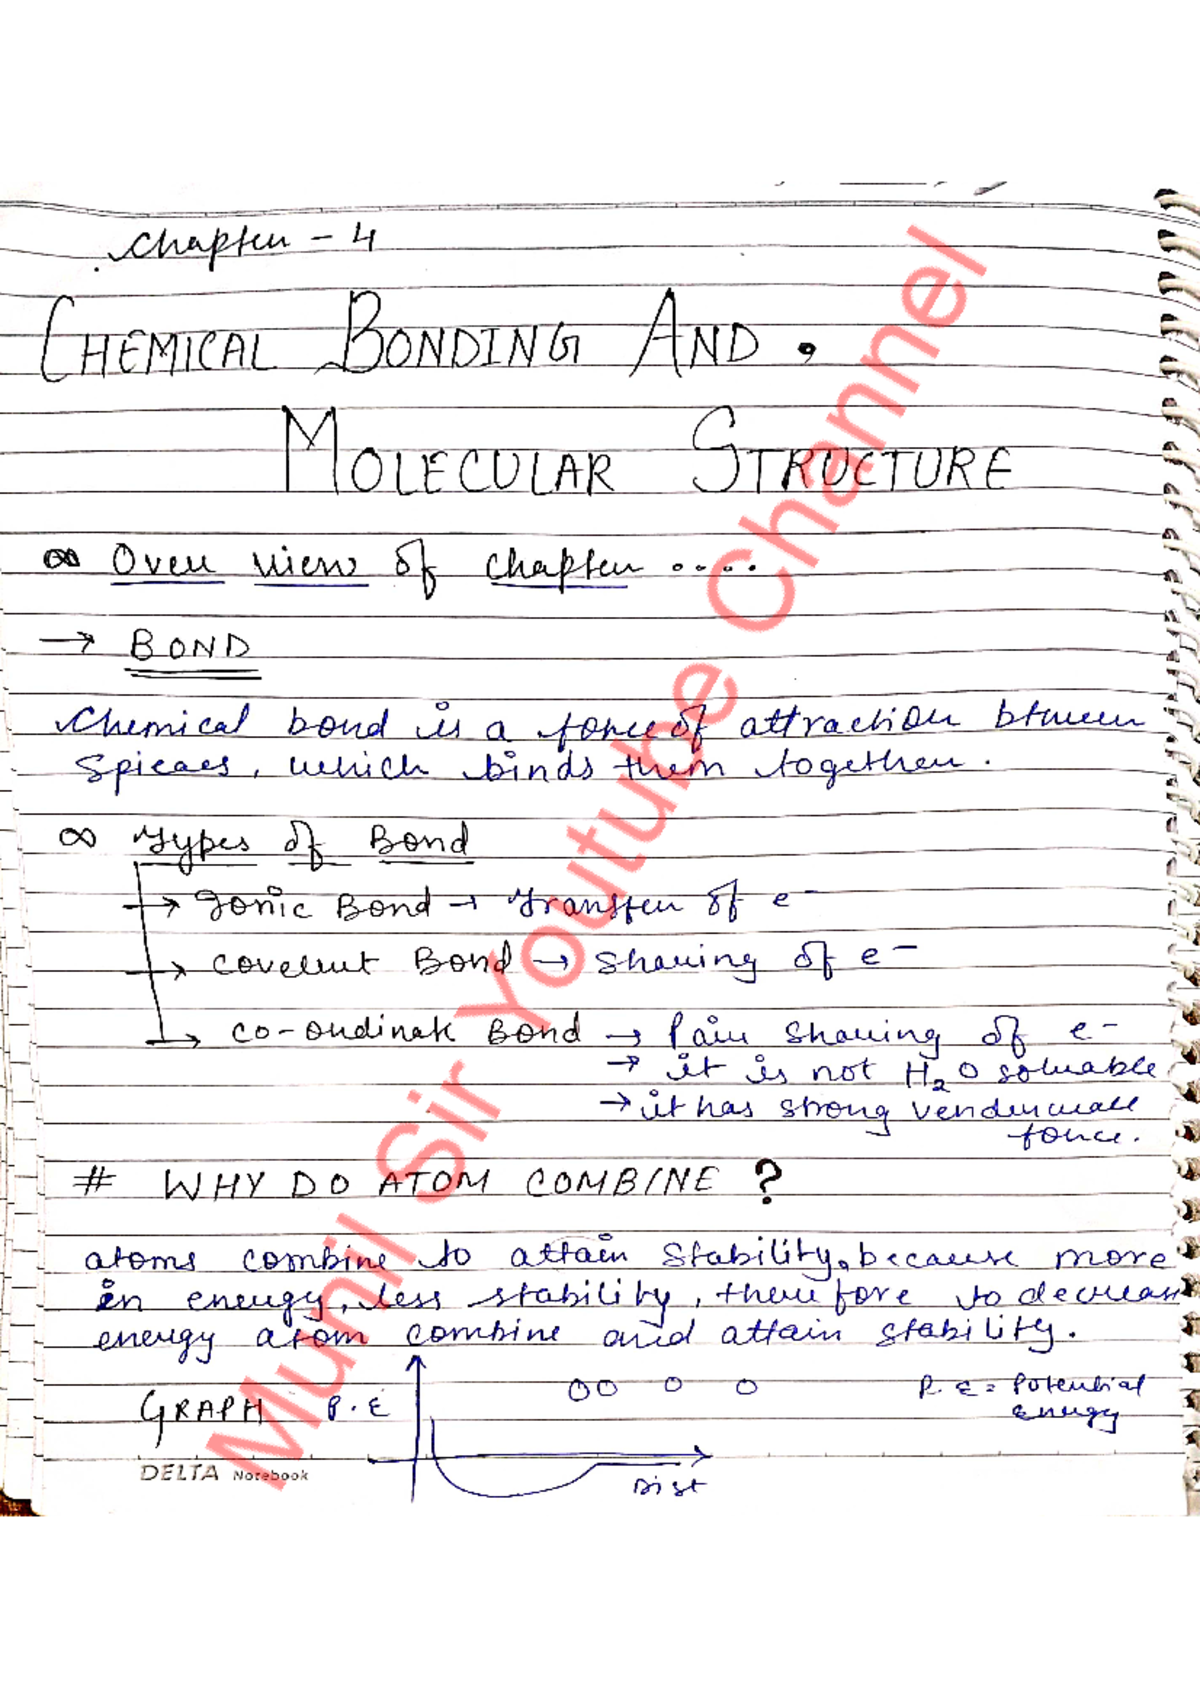 Chapter - 4
CHEMICAL BONDING AND
MOLECULAR STRUCTURE
∞ Over view of chapter .....
→ BOND
Chemical bond is a force of attraction btween
Spicaes, which binds them together.
∞ Types of Bond
→ Ionic Bond → Transfer of e⁻
→ Covelent Bond → Sharing of e⁻
→ Co-ordinate Bond → Pair sharing of e⁻
→ it is not H₂O soluable
→ it has strong venderwall
force.
# WHY DO ATOM COMBINE ?
atoms combine to attain Stability, because more
in energy, less stability, therefore to decrease
energy atom combine and attain stability.
GRAPH P.E P.E = Potential
Energy
Dist
DELTA Notebook
Munil Sir Youtube Channel